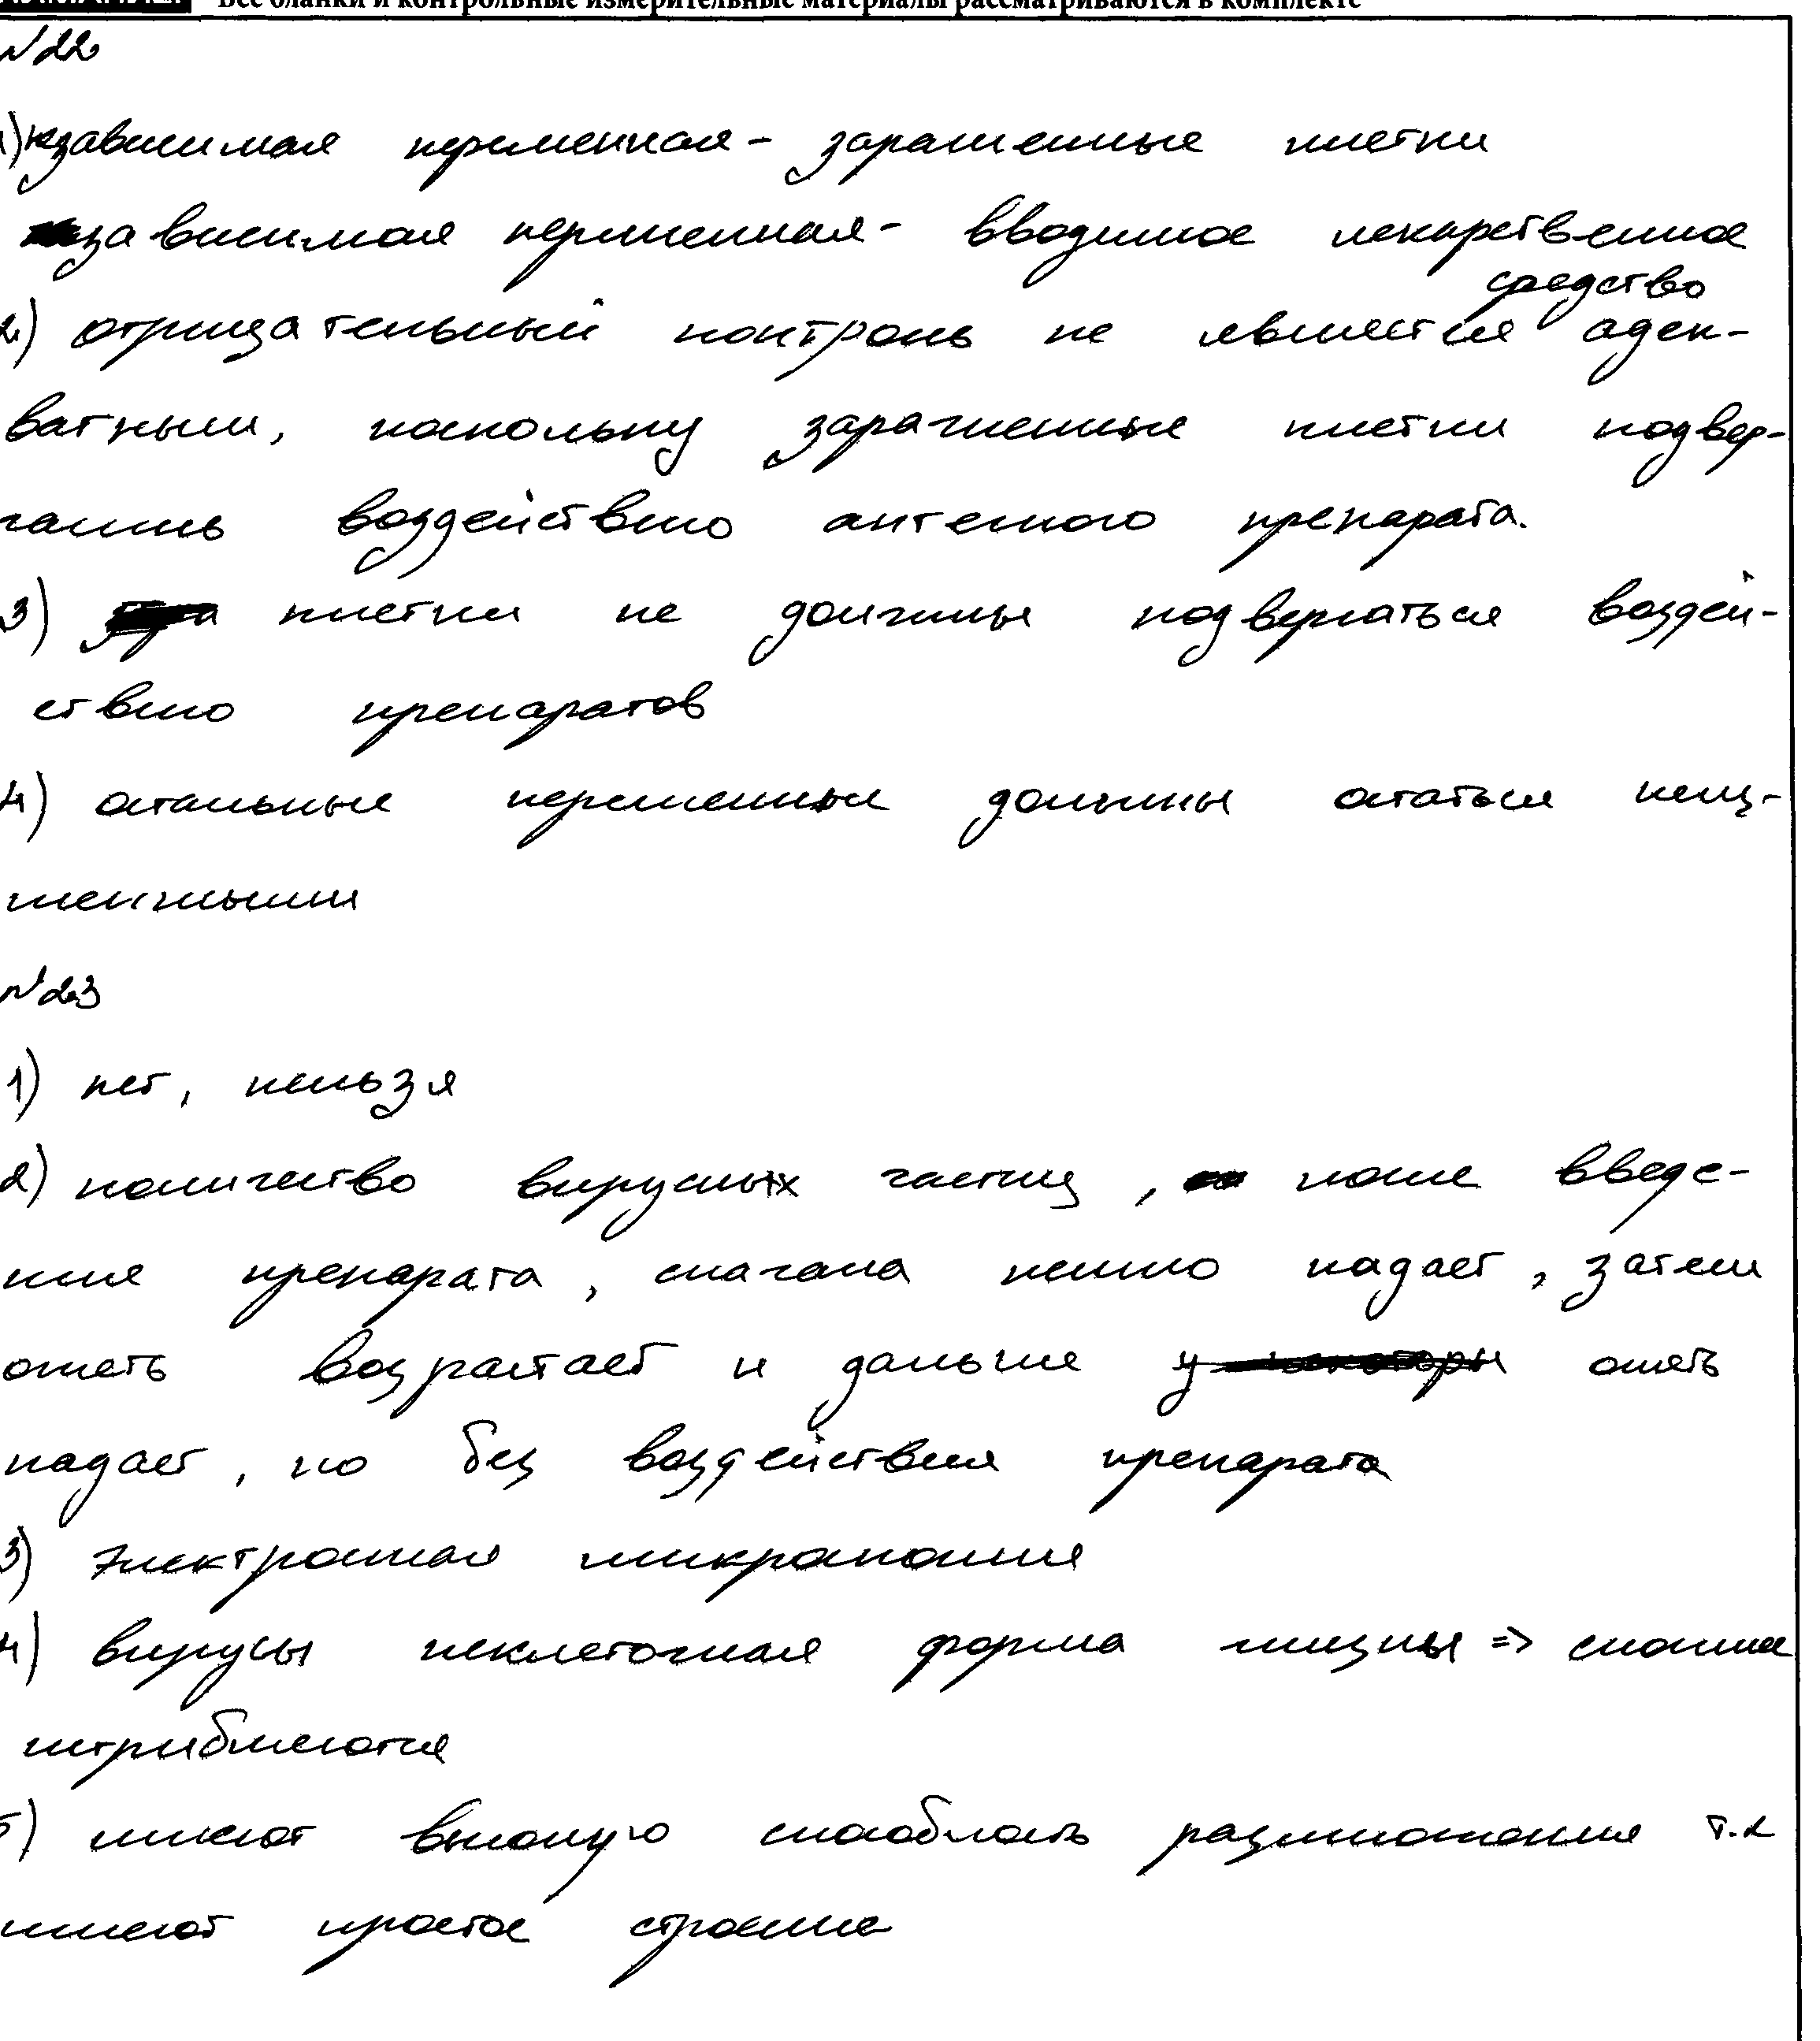 Все бланки и контрольные измерительные материалы рассматриваются в комплекте
№22
1) независимая переменная - зараженные клетки
зависимая переменная - вводимое лекарственное
средство
2) отрицательный контроль не является адек-
ватным, поскольку зараженные клетки подвер-
гались воздействию антемого препарата.
3) клетки не должны подвергаться воздей-
ствию препаратов
4) остальные переменные должны остаться неиз-
менными
№23
1) нет, нельзя
2) количество вирусных частиц, после введе-
ния препарата, сначала немно падает, затем
опять возрастает и дальше опять
падает, но без воздействия препарата
3) Электронная микроскопия
4) вирусы неклеточная форма жизни =>
5) имеют высокую способность размножения т.к
имеют простое строение